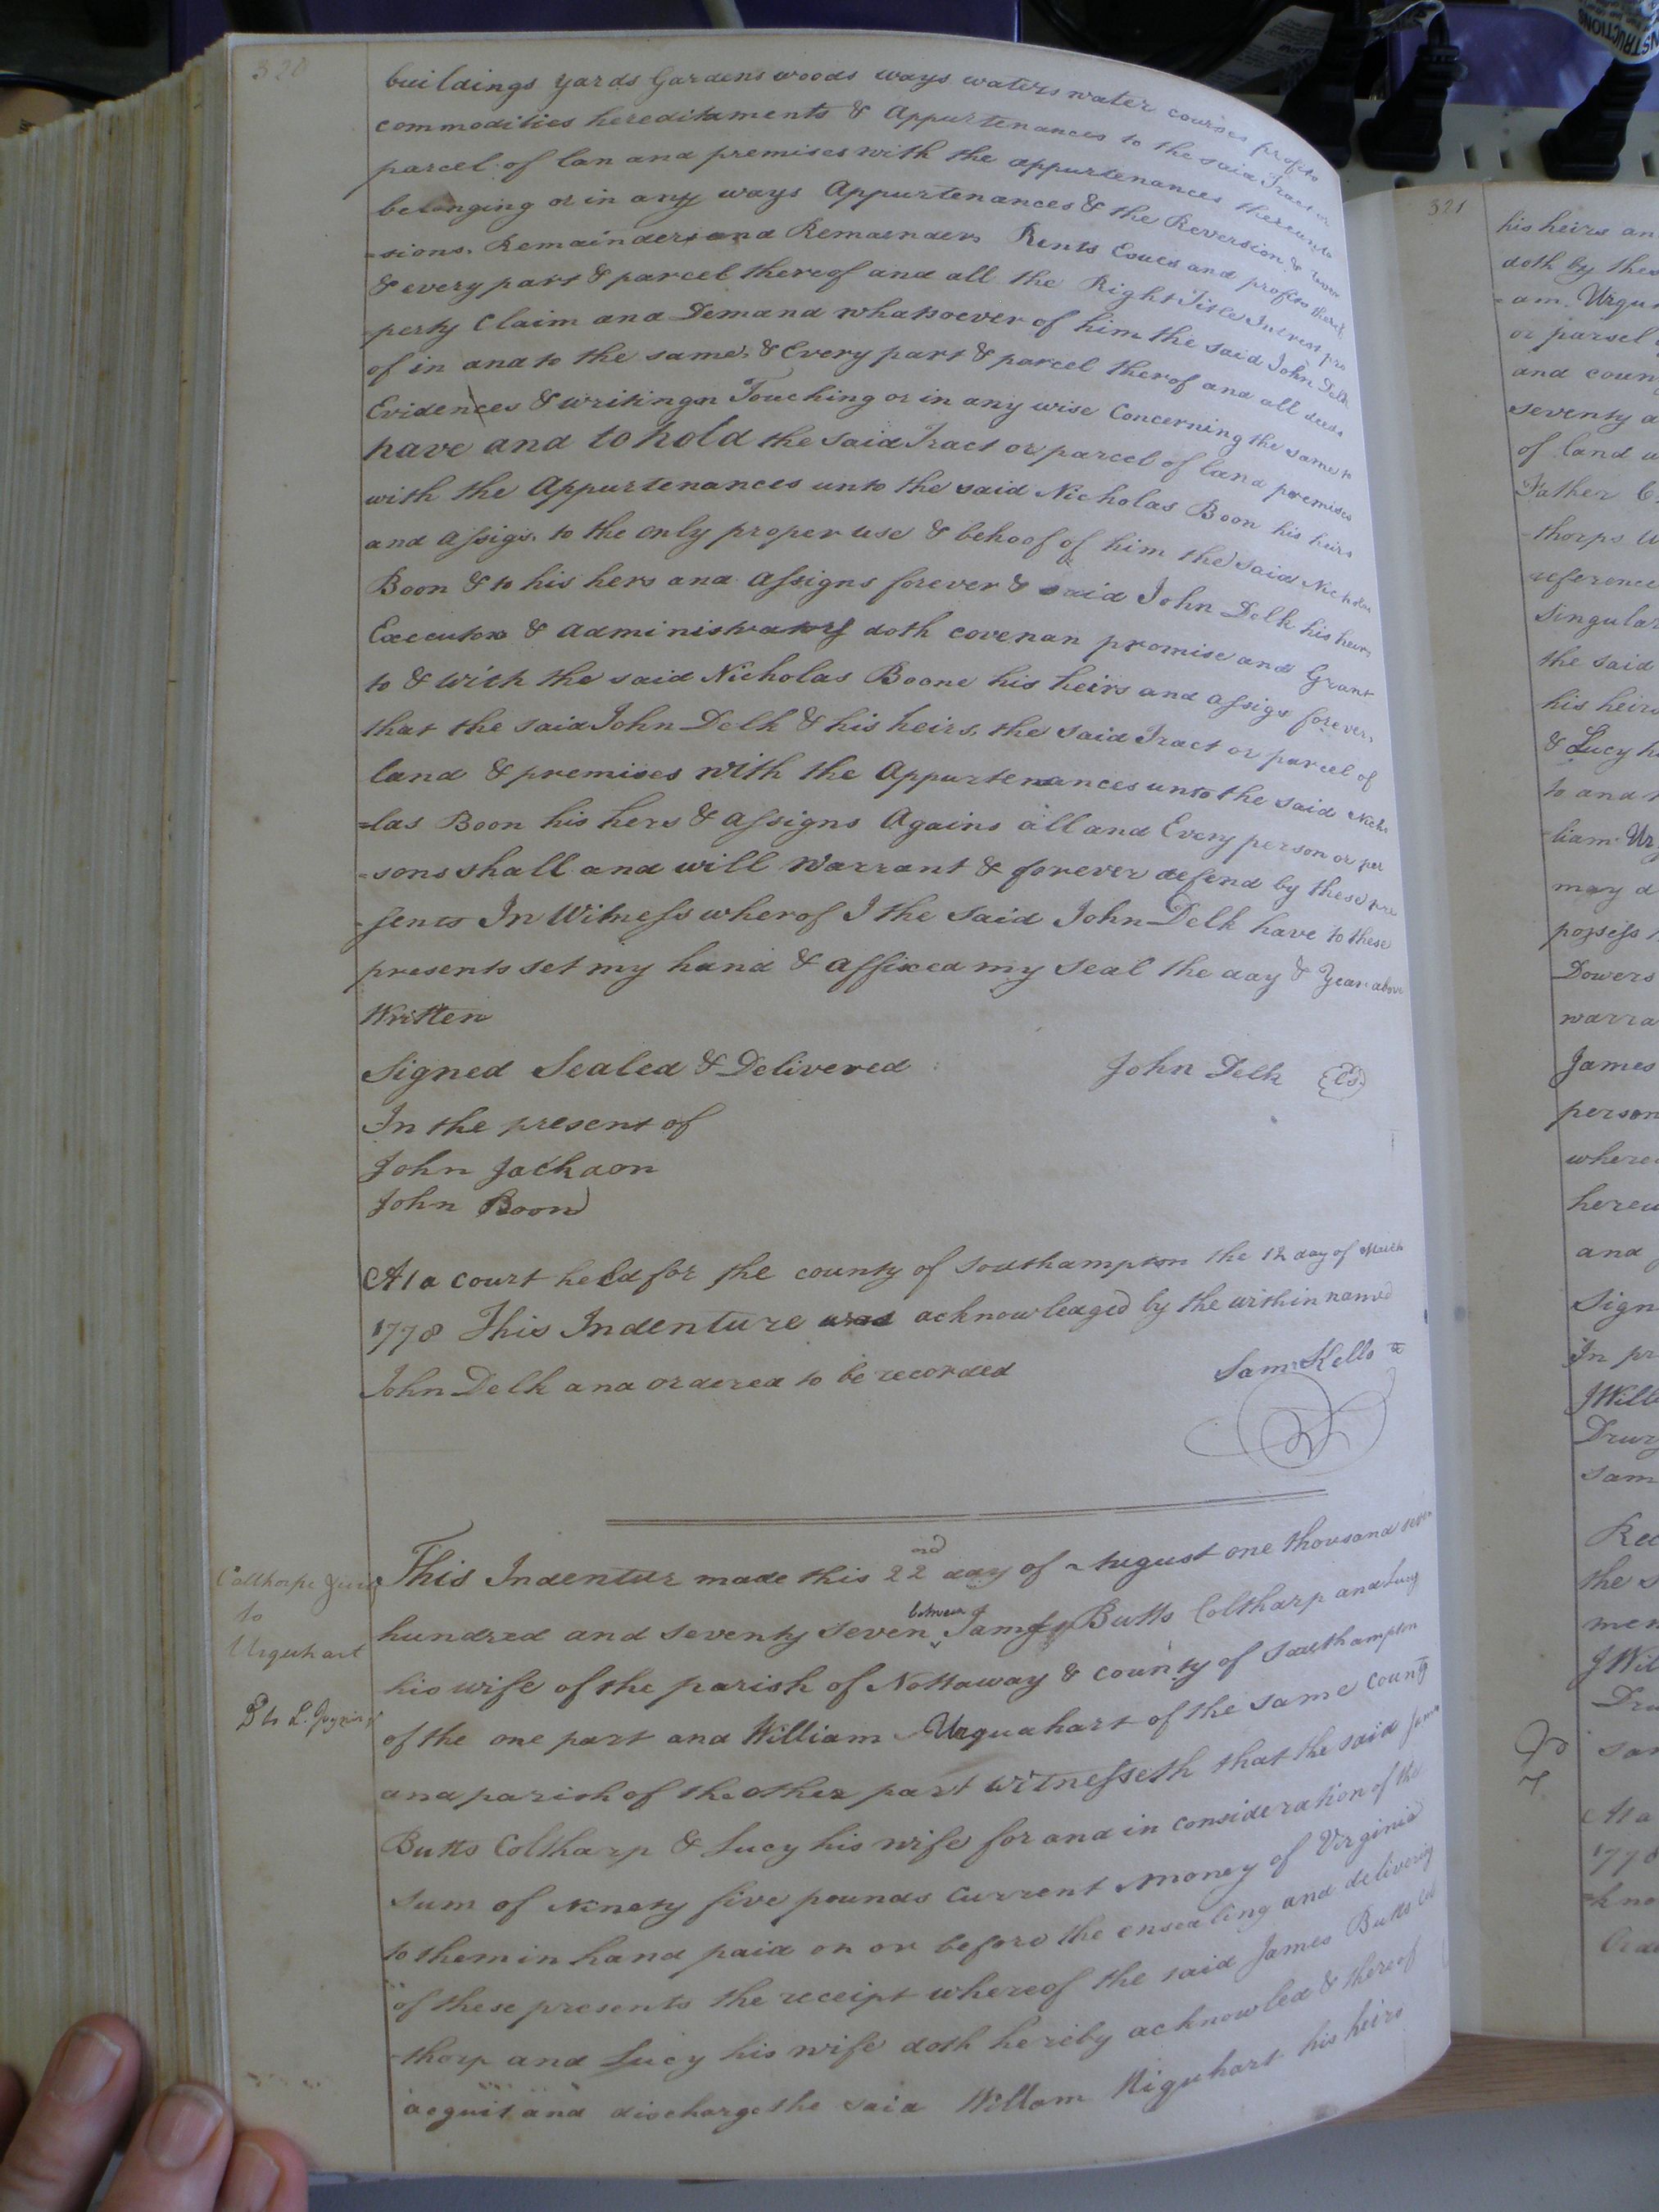 320
buildings yards Gardens woods ways waters water courses profits
commodities hereditaments & Appurtenances to the said Tract or
parcel of lan and premises with the appurtenances thereunto
belonging or in any ways Appurtenances & the Reversion &
=sions. Remainder and Remaenders Rents Esues and profits thereof
& every part & parcel thereof and all the Right Title Interest pro
=perty Claim and Demand whatsoever of him the said John Delk
of in and to the same, & Every part & parcel therof and all deeds
Evidences & writings Touching or in any wise Concerning the same to
have and to hold the said Tract or parcel of land premises
with the Appurtenances unto the said Nicholas Boon his heirs
and assigs. to the only proper use & behoof of him the said Nicholas
Boon & to his hers and assigns forever & said John Delk his heirs
Executors & administrators doth covenan promise and Grant
to & with the said Nicholas Boone his heirs and assigs forever,
that the said John Delk & his heirs, the said Tract or parcel of
land & premises with the Appurtenances unto the said Nicho
=las Boon his hers & assigns Agains all and Every person or per
=sons shall and will Warrant & forever defend by these pre
-sents In Witness wherof I the said John Delk have to these
presents set my hand & affixed my seal the day & Year above
Written
Signed Sealed & Delivered John Delk Ls.
In the present of
John Jackson
John Boon
At a court held for the county of Southampton the 12 day of March
1778 This Indenture was acknowledged by the within named
John Delk and ordered to be recorded
Sam: Kello
Calthorpe
to
Urquhart
This Indentur made this 22nd day of August one thousand seven
hundred and seventy seven between James Butts Coltharp and Lucy
his wife of the parish of Nottaway & county of Southampton
of the one part and William Urquahart of the same County
and parish of the other part witnesseth that the said James
Butts Coltharp & Lucy his wife for and in consideration of the
sum of Ninety five pounds Current money of Virginia
to them in hand paid on or before the ensealing and delivering
of these presents the receipt whereof the said James Butts Col
-thorp and Lucy his wife doth hereby acknowled & thereof
acquit and discharge the said Willam Niquhart his heirs
321
his heirs an
doth by thes
=am. Urquh
or parsel
and coun
seventy a
of land
Father
-thorps
reference
Singular
the said
his heirs
& Lucy h
to and
-liam Ur
may
possess
Dowers
warra
James
person
where
hereu
and
Sign
In pr
J Will
Drury
sam
Rec
the s
men
J Wil
Dru
sam
At a
1778
=kno
Orde
INSTRUCTIONS